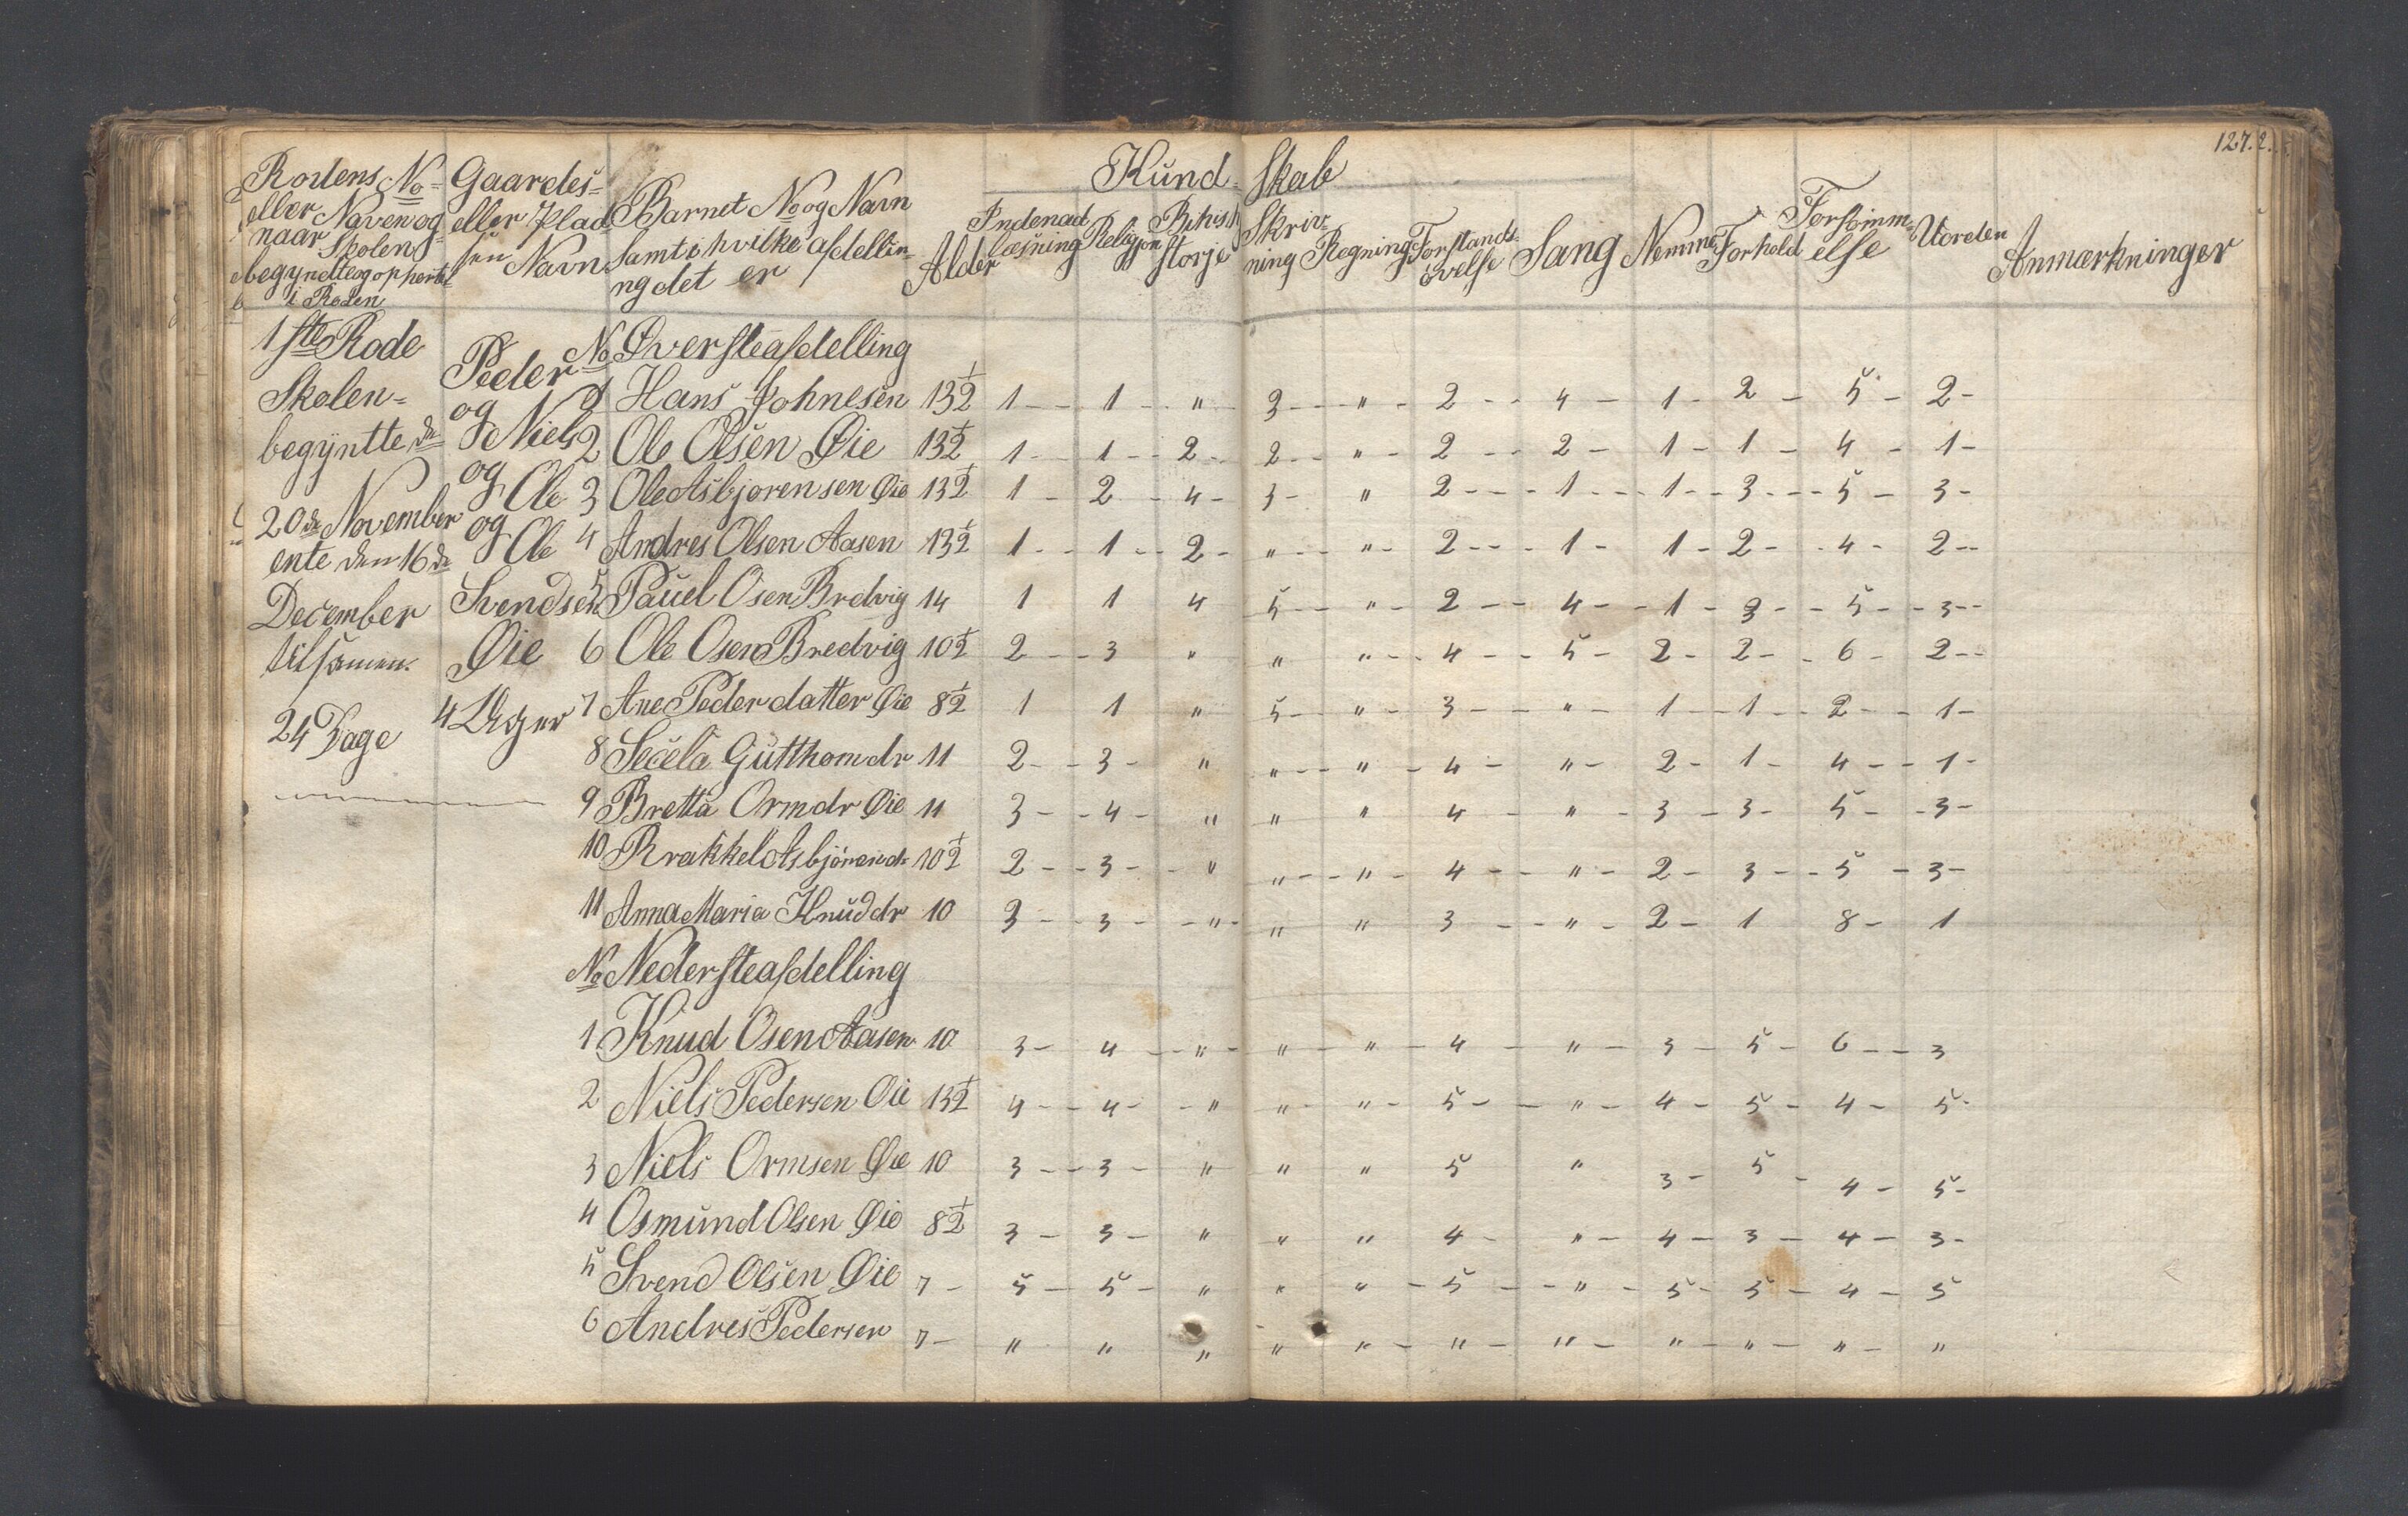 127.2.
Kund- Skab
Rodens No- Gaardes- Barnet No og Navn Alder Indenad Religjon Bibish Skriv- Regning Forstands- Sang Nemme Forhold Forsömm- Uorden Anmærkninger
eller Navn og eller Plad samt i hvilke afdellin- læsning storje ning övelse else
naar Skolen sen Navn ng det er
begyndte og ophørte
i Roden
1ste Rode Peder No Øversteafdelling
Skolen- og 1 Hans Johnesen 13½ 1 - - 1 - - " - 3 - - " - 2 - - 4 - 1 - 2 - 5 - 2 -
begyntte de Niels 2 Ole Olsen Øie 13½ 1 - - 1 - - 2 - 2 - - " - 2 - - 2 - 1 - 1 - 4 - 1 -
20de November og Ole 3 Ole Asbjorensen Øie 13½ 1 - 2 - 4 - 3 - " 2 - - - 1 - - - 1 - - 3 - - - 5 - 3 -
ente den 16de og Ole 4 Andres Olsen Aasen 13½ 1 - - 1 - - 2 - " - - " - 2 - - - 1 - 1 - 2 - - 4 - 2 - -
December Svendsen 5 Pauel Osen Bredvig 14 1 1 4 5 - - " - 2 - - 4 - - 1 - 3 - - 5 - - 3 - -
tilsamen Øie 6 Ole Osen Bredvig 10½ 2 - - 3 " " " - - 4 - - 5 - 2 - 2 - - 6 - 2 - -
24 Dage 4 Uger 7 Ane Pederdatter Øie 8½ 1 1 " 5 - " - 3 - - " - 1 - 1 - - 2 - - 1 -
8 Secela Gutthomdr 11 2 - - 3 - " " - - " - 4 - " - 2 - 1 - 4 - - 1 -
9 Bretta Ormdr Øie 11 3 - - 4 - " " " 4 - " - 3 - 3 - 5 - - 3 -
10 Rrakkel Asbjörendr 10½ 2 - - 3 - - " " - - " - 4 - - " - 2 - 3 - - 5 - 3 -
11 Anna Maria Knuddr 10 3 - - 3 - - " - " " 3 - - " - 2 - 1 8 - 1
No Nedersteafdelling
1 Knud Osen Aasen 10 3 - 4 - - " - " - " - 4 - " - 3 - 5 - 6 - - 3
2 Niels Pedersen Øie 13½ 4 - - 4 - - " " - " - 5 - - " - 4 - 5 - 4 - 5 -
3 Niels Ormsen Øie 10 3 - - 3 - " " " 5 " 3 - 5 - 4 - 5 -
4 Osmund Olsen Øie 8½ 3 - 3 - " " " 4 - " - 4 - 3 - 4 - 3 -
5 Svend Olsen Øie 7 - 5 - 5 - " " " - 5 - - " - 5 - 5 - 4 - 5
6 Andres Pedersen 7 - " " " " " - " - " - " - " - " - "